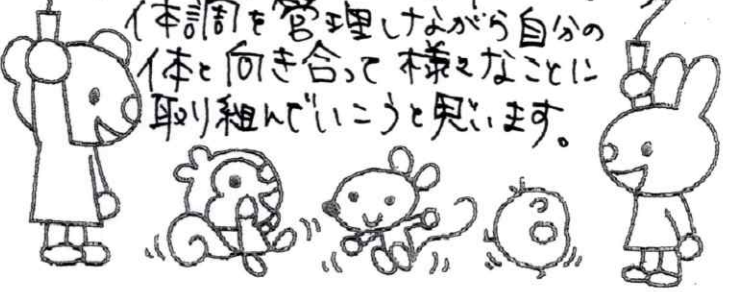 体調を管理しながら自分の
体と向き合って様々なことに
取り組んでいこうと思います。